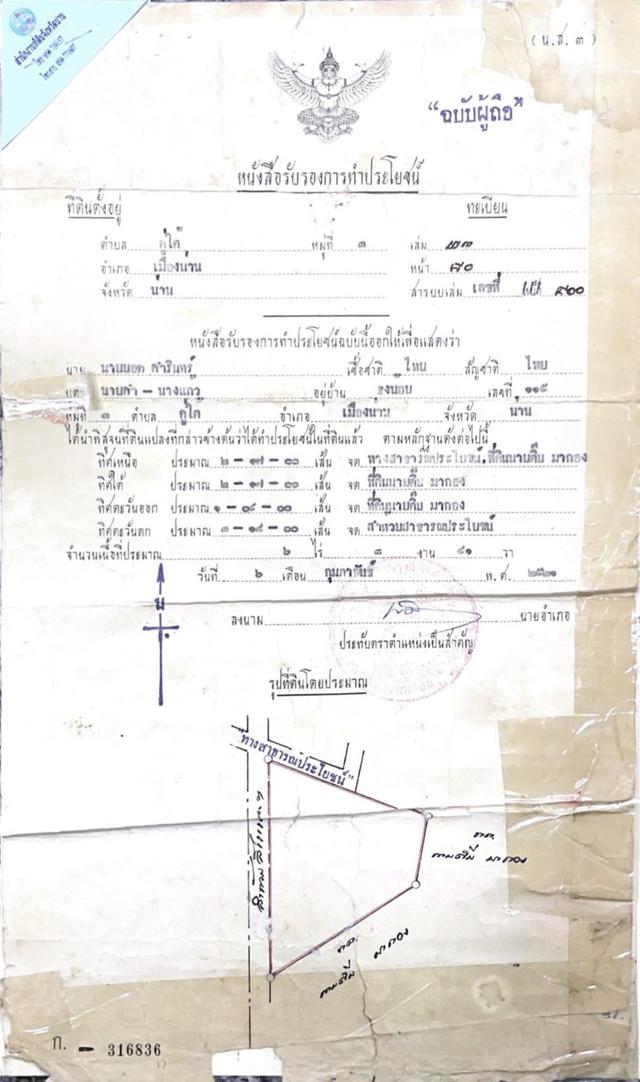 สำนักงานที่ดินจังหวัดน่าน
( น.ส. ๓ )
"ฉบับผู้ถือ"
หนังสือรับรองการทำประโยชน์
ที่ดินตั้งอยู่ ทะเบียน
ตำบล ดู่ใต้ หมู่ที่ ๓ เล่ม
อำเภอ เมืองน่าน หน้า ๙๐
จังหวัด น่าน สารบบเล่ม เลขที่
หนังสือรับรองการทำประโยชน์ฉบับนี้ออกให้เพื่อแสดงว่า
นาย เชื้อชาติ ไทย สัญชาติ ไทย
นายคำ - นางแก้ว อยู่บ้าน เลขที่ ๑๑๕
หมู่ที่ ๓ ตำบล ดู่ใต้ อำเภอ เมืองน่าน จังหวัด น่าน
ได้นำพิสูจน์ที่ดินแปลงที่กล่าวข้างต้นว่าได้ทำประโยชน์ในที่ดินแล้ว ตามหลักฐานดังต่อไปนี้
ทิศเหนือ ประมาณ ๒ - ๓๗ - ๐๐ เส้น จด ทางสาธารณประโยชน์, ที่ดินนายตี๊บ มากอง
ทิศใต้ ประมาณ ๒ - ๓๗ - ๐๐ เส้น จด ที่ดินนายตี๊บ มากอง
ทิศตะวันออก ประมาณ ๑ - ๐๘ - ๐๐ เส้น จด ที่ดินนายตี๊บ มากอง
ทิศตะวันตก ประมาณ ๓ - ๑๘ - ๐๐ เส้น จด ลำหวยสาธารณประโยชน์
จำนวนเนื้อที่ประมาณ ๖ ไร่ ๓ งาน ๔๑ วา
วันที่ ๖ เดือน กุมภาพันธ์ พ.ศ. ๒๕๒๑
น
ลงนาม นายอำเภอ
ประทับตราตำแหน่งเป็นสำคัญ
รูปที่ดินโดยประมาณ
"ทางสาธารณประโยชน์"
ทด.
มากอง
ทด.
มากอง
ก. - 316836